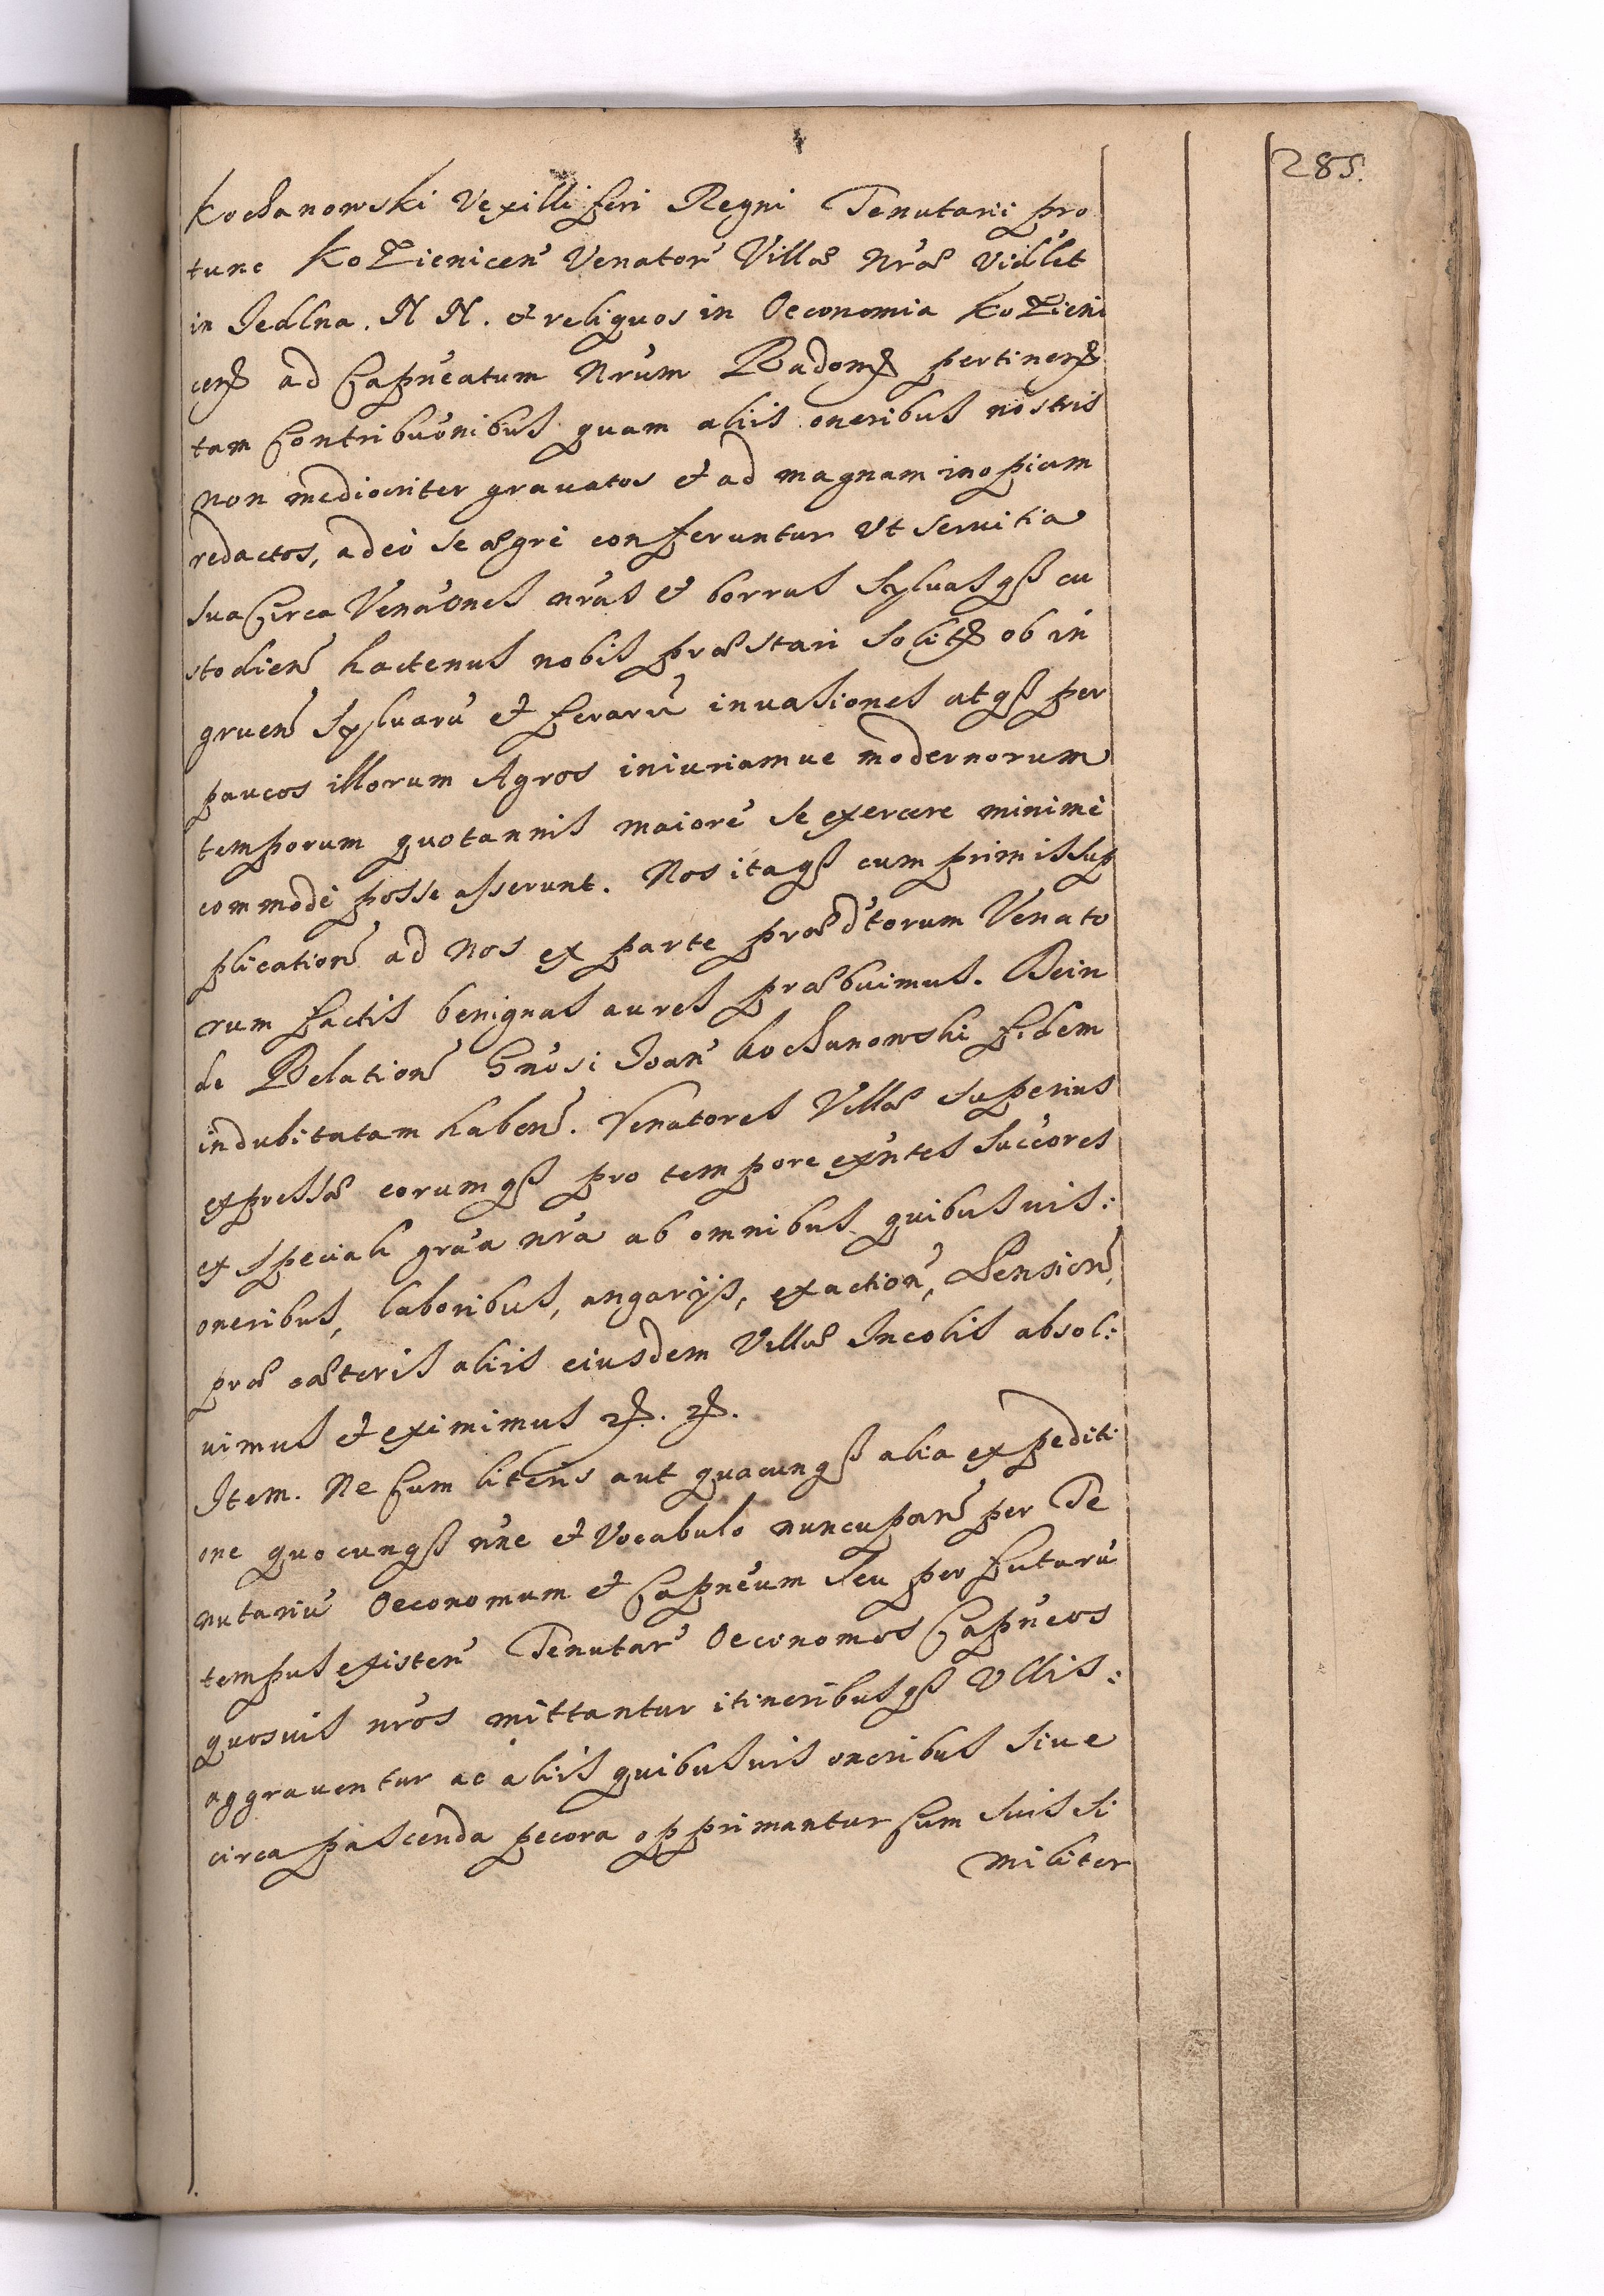 285.
Kochanowski Vexilliferi Regni Tenutarii pro
tunc Kozienicen̄ Venator̄ Villæ Nr̄æ vidlt
in Jedlna. N N. et reliquos in Oeconomia Kozieni
cen̄ ad Capn̄eatum Nr̄um Radom̄ pertinen̄
tam Contribuōnibus quam aliis oneribus nostris
non mediocriter gravatos et ad magnam inopiam
redactos, adeò se ægrè conferuntur Ut servitia
sua Circa Venāones nr̄as et borras Sylvasq́ß cu
stodien̄ hactenus nobis præstari solit̄ ob in
gruen̄ Sylvarū et ferarū invasiones atq́ß per
paucos illorum Agros iniuriamue modernorum
temporum quotannis maiorē se exercere minimè
commodè posse asserunt. Nos itaq́ß cum primis sup
plication̄ ad Nos ex parte prædt̄orum Venato
rum factis benignas aures præbuimus. Dein
de Relation̄ Gn̄osi Joan̄ Kochanowski fidem
indubitatam haben̄. Venatores Villæ superius
expressæ eorumq́ß pro tempore exn̄tes Succ̄ores
ex speciali grā̄a nr̄a ab omnibus quibusuis:
oneribus, laboribus, angarijs, exaction̄, Pension̄,
præ cæteris aliis eiusdem Villæ Incolis absol:
uimus et eximimus etc. etc.
Item. Ne Cum literis aut quacunq́ß alia expediti
one quocunq́ß nn̄e et Vocabulo nuncupan̄ per Te
nutariū Oeconomum et Capn̄eum seu per futurū
tempus existen̄ Tenutar̄ Oeconomos Capn̄eos
quosuis nr̄os mittantur itineribusq́ß Ullis:
aggrauentur ac aliis quibusuis oneribus siue
circa pascenda pecora opprimantur Cum suis si
militer